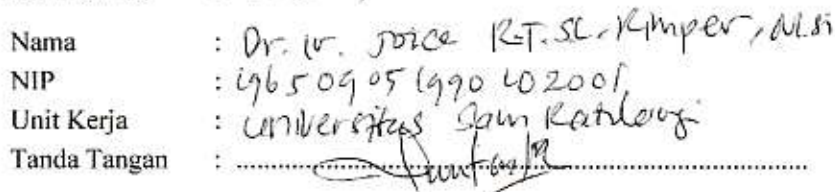 Nama : Dr. Ir. Joice R.T.SL. Rimper, M.Si
NIP : 196509051990102001
Unit Kerja : Universitas Sam Ratulangi
Tanda Tangan :